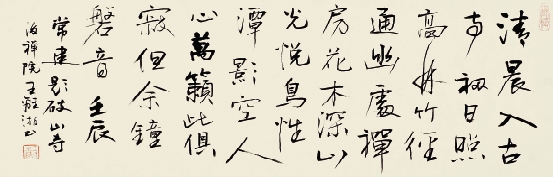 清晨入古
寺初日照
高林竹徑
通幽處禪
房花木深山
光悦鳥性
潭影空人
心萬籟此俱
寂但余鐘
磬音 壬辰
常建題破山寺
後禪院 王